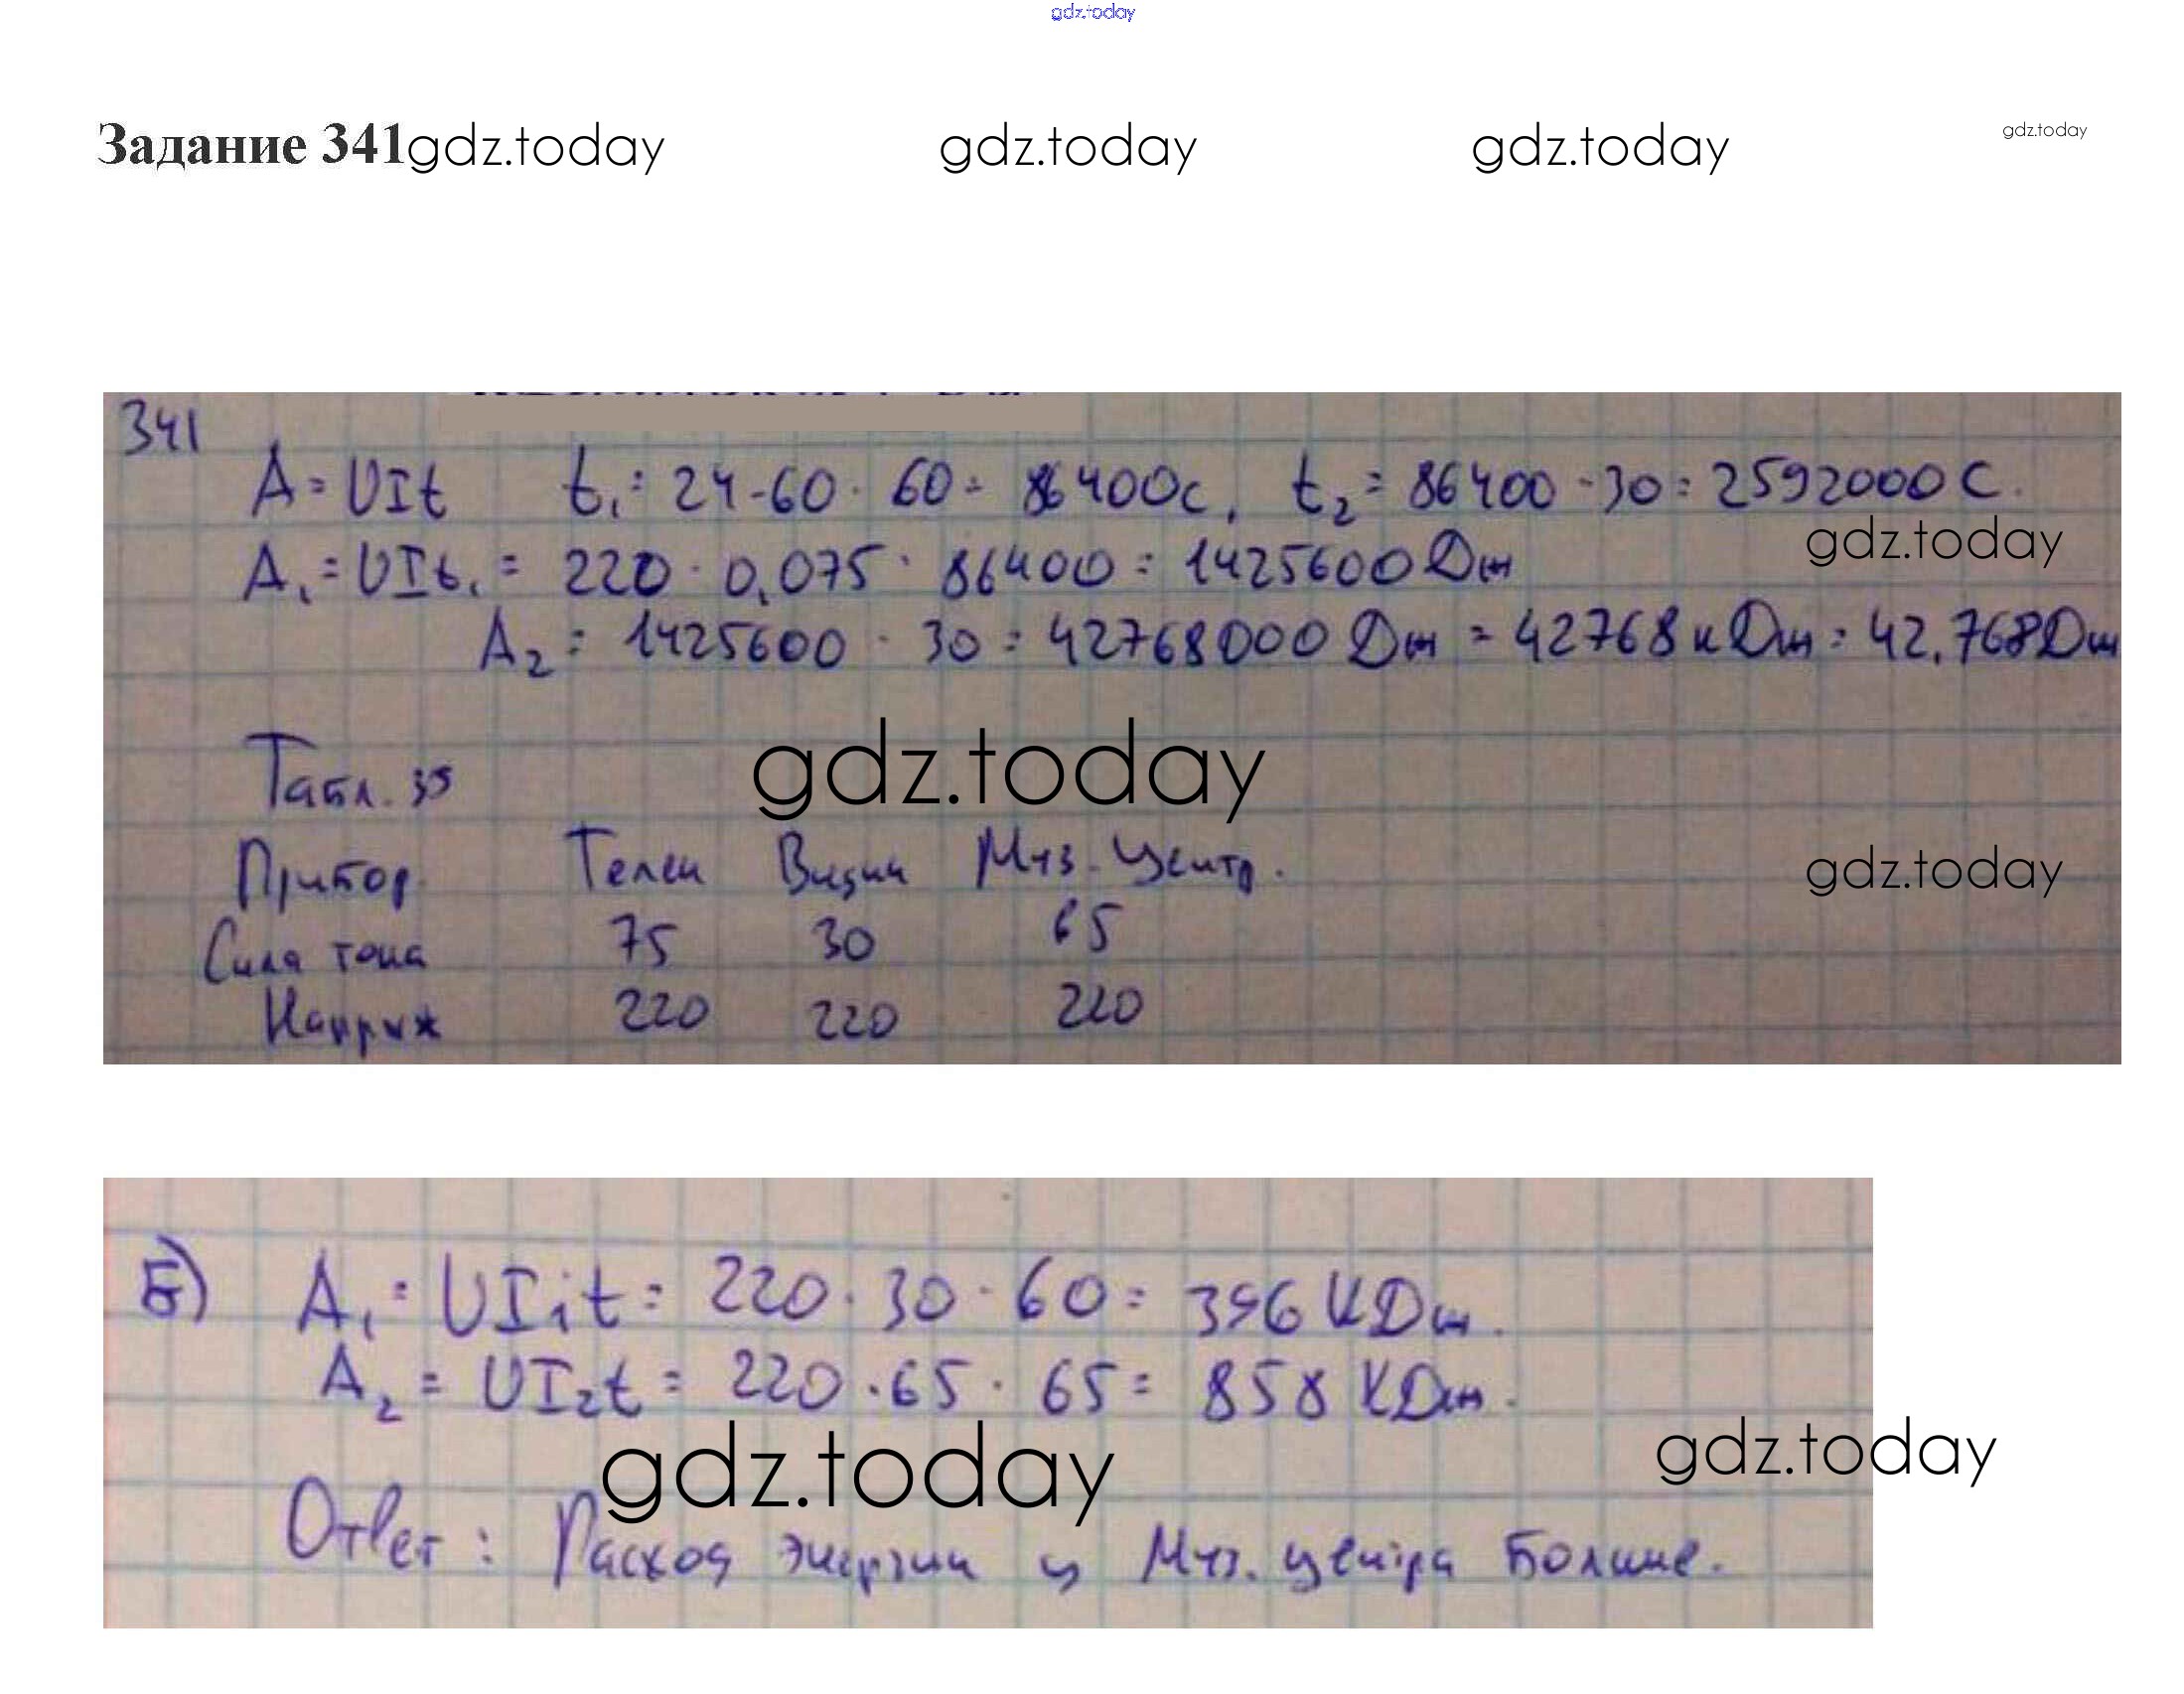 gdz.today
Задание 341gdz.today gdz.today gdz.today gdz.today
341
A = UIt t₁ = 24 · 60 · 60 = 86400с, t₂ = 86400 · 30 = 2592000 С.
gdz.today
A₁ = UIt₁ = 220 · 0,075 · 86400 = 1425600 Дж
A₂ = 1425600 · 30 = 42768000 Дж = 42768 кДж = 42,768Дж
Табл. 35
gdz.today
Прибор Телеи Видии Муз. Центр.
gdz.today
Сила тока 75 30 65
Напряж 220 220 220
Б) A₁ = UI₁t = 220 · 30 · 60 = 396 КДж.
A₂ = UI₂t = 220 · 65 · 65 = 858 КДж.
gdz.today gdz.today
Ответ: Расход энергии у Муз. центра Больше.